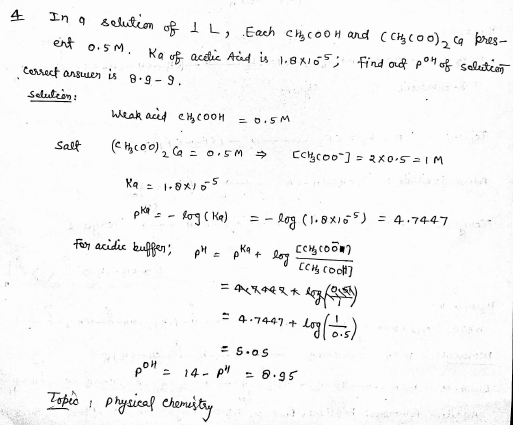 4 In a solution of 1 L, Each CH3COOH and (CH3COO)2 Ca pres-
ent 0.5M. Ka of acetic Acid is 1.8×10^-5; find out pOH of solution
Correct answer is 8.9-9.
Solution:
Weak acid CH3COOH = 0.5M
Salt (CH3COO)2 Ca = 0.5M ⇒ [CH3COO-] = 2×0.5 = 1M
Ka = 1.8×10^-5
pKa = - log (Ka) = - log (1.8×10^-5) = 4.7447
For acidic buffer; pH = pKa + log [CH3COO-]/[CH3COOH]
= 4.7447 + log(1/0.5)
= 5.05
pOH = 14 - pH = 8.95
Topic : physical chemistry